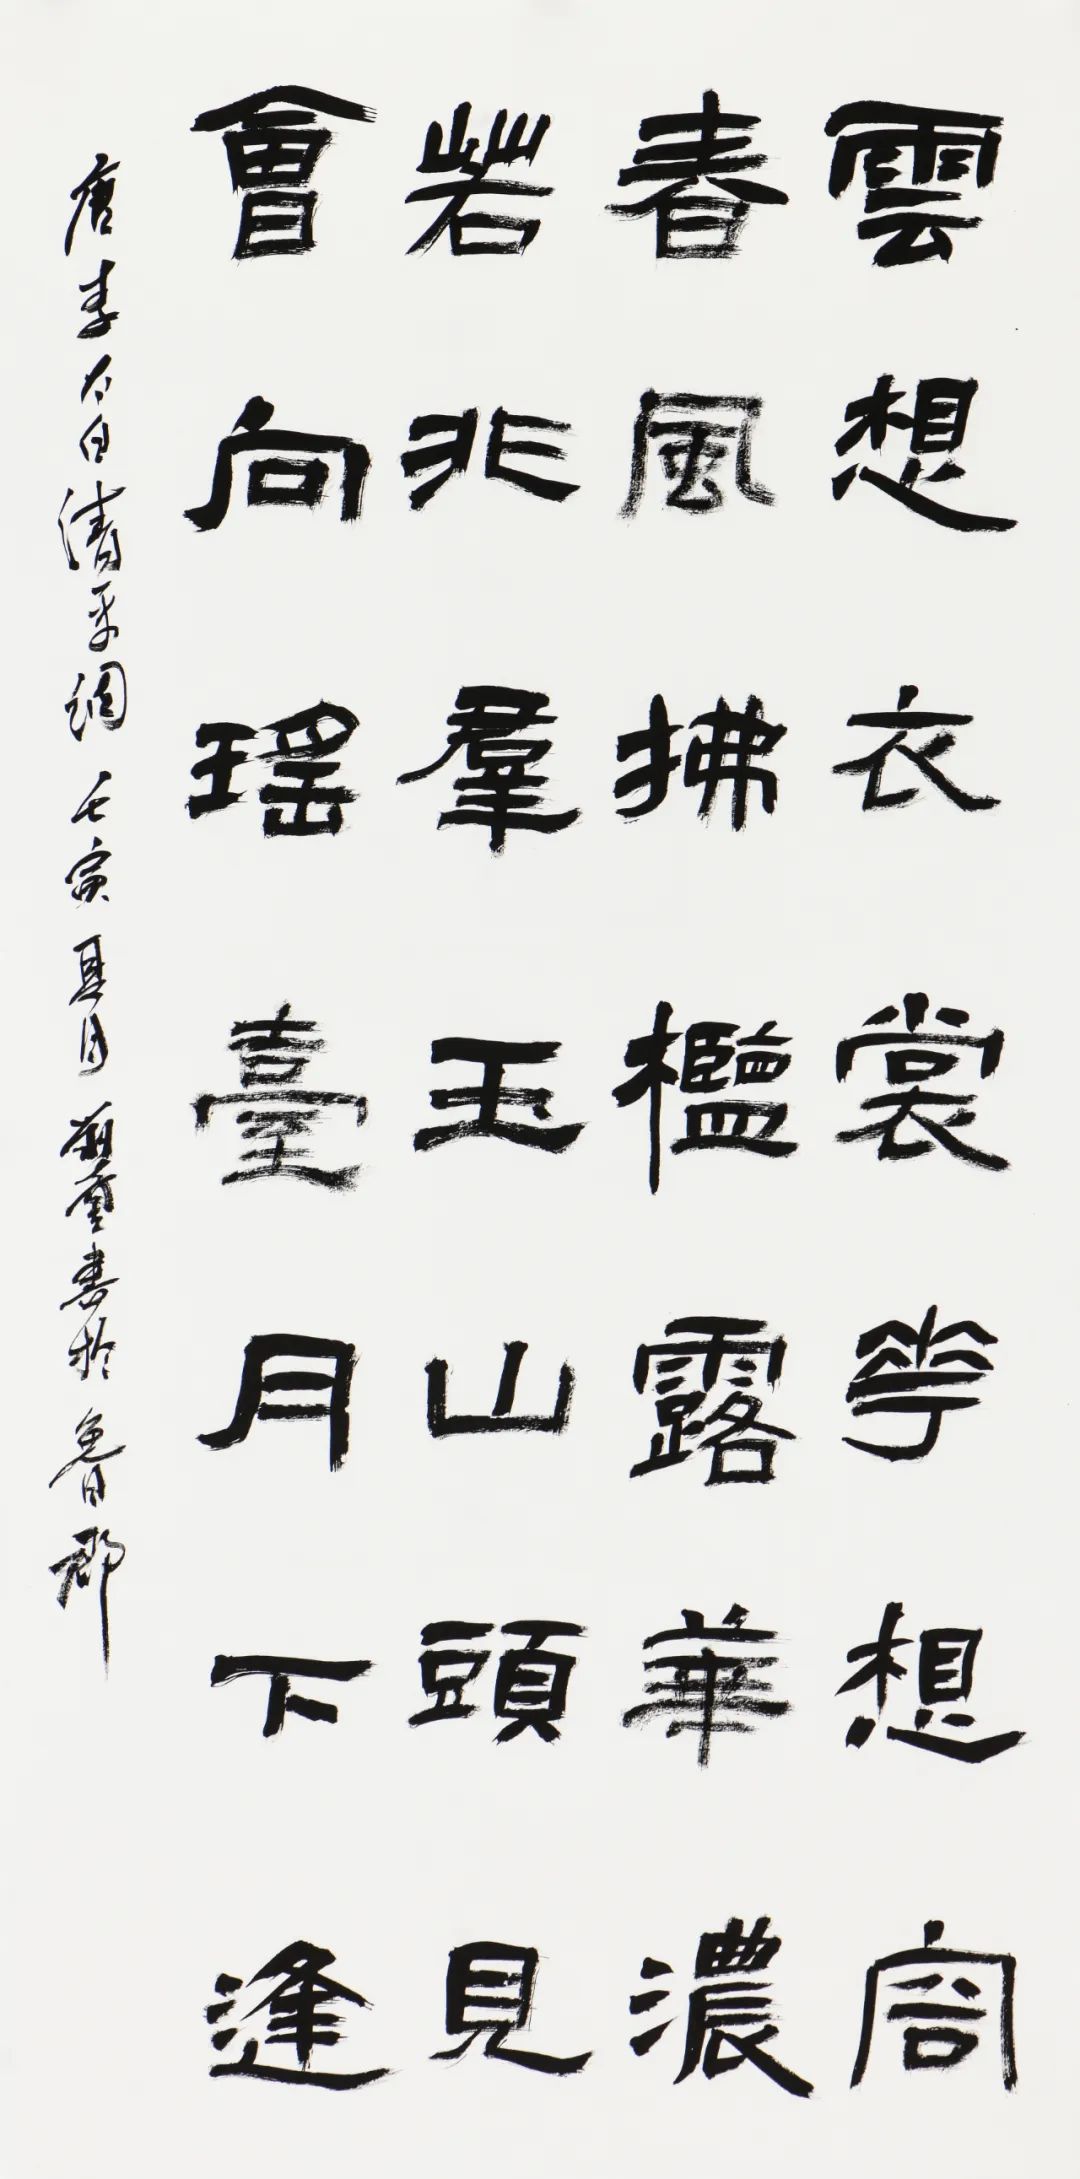 雲想衣裳花想容
春風拂檻露華濃
若非羣玉山頭見
會向瑤臺月下逢
唐李太白清平調 壬寅夏月 書於魯郡